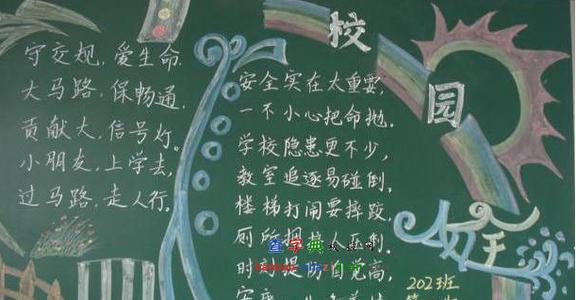 守交规，爱生命.
大马路，保畅通.
贡献大，信号灯.
小朋友，上学去，
过马路，走人行.
校园
安全
安全实在太重要，
一不小心把命抛.
学校隐患更不少，
教室追逐易碰倒.
楼梯打闹要摔跤，
厕所拥挤人
时刻提 自觉高，
查字典
202班